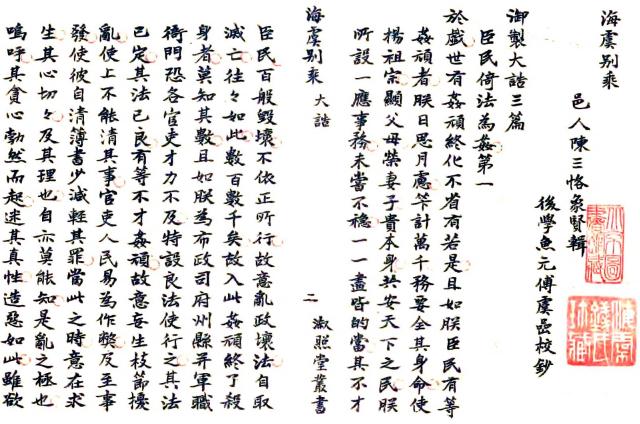 海虞别乘
邑人陳三恪象賢輯
後學魚元傅虞嵒校鈔
御製大誥三篇
臣民倚法為姦第一
於戲世有姦頑終化不省有若是且如朕臣民有等
姦頑者朕日思月慮筭計萬千務要全其身命使
揚祖宗顯父母榮妻子貴本身共安天下之民朕
所設一應事務未嘗不穩一一盡皆的當其不才
海虞别乘 大誥 二 淑照堂叢書
臣民百般毀壞不依正所行故意亂政壞法自取
滅亡往々如此數百數千矣故入此姦頑終了殺
身者莫知其數且如朕為布政司府州縣并軍職
衙門恐各官吏才力不及特設良法使行之其法
已定其法已良有等不才姦頑故意妄生枝節擾
亂使上不能清其事官吏人民易為作弊及至事
發使彼自清薄書少減輕其罪當此之時意在求
生其心切々及其理也自亦莫能知是亂之極也
嗚呼其貪心勃然而起迷其真性造惡如此雖欲